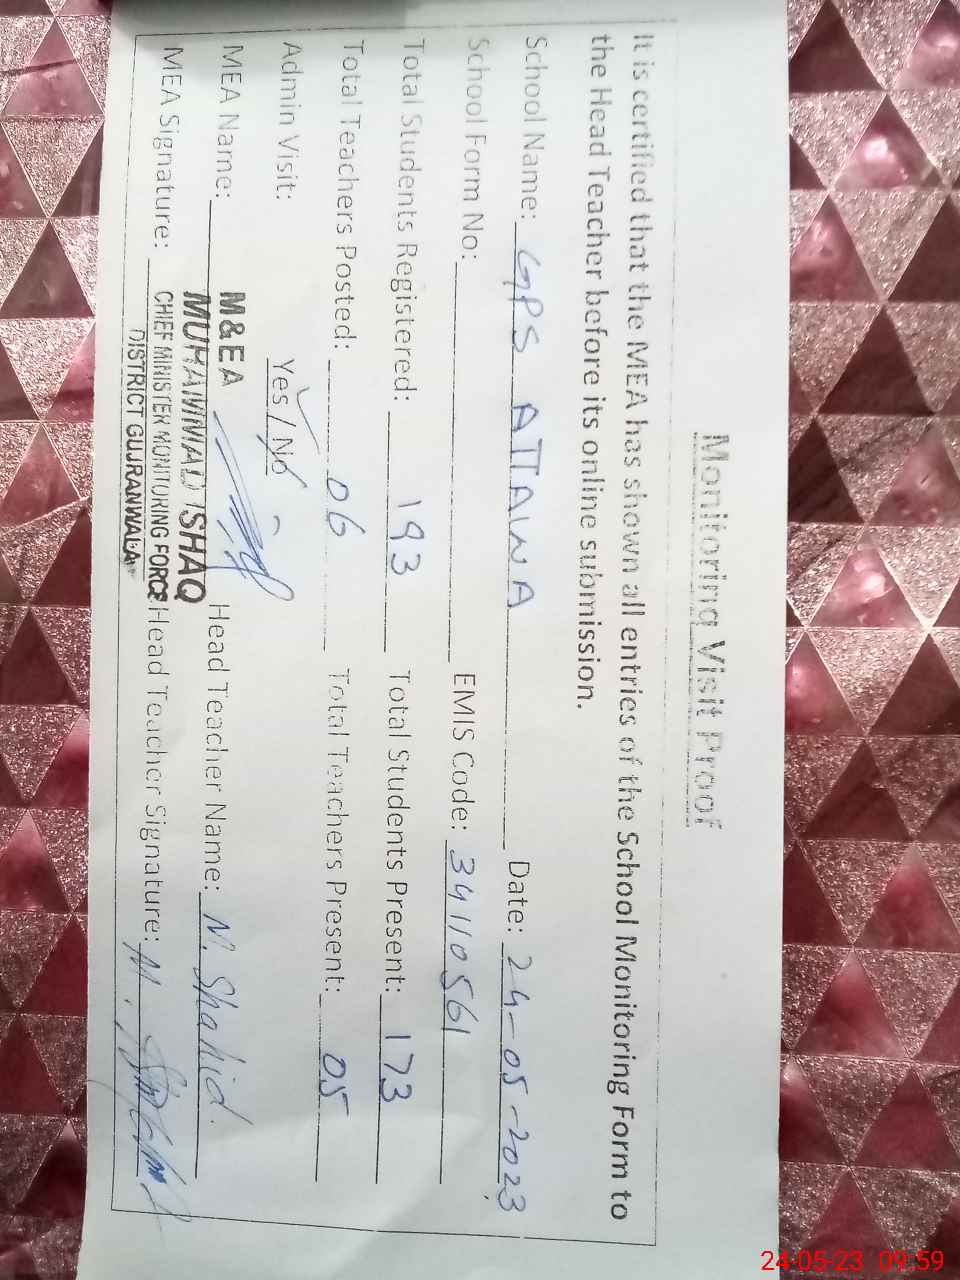 Monitoring Visit Proof
It is certified that the MEA has shown all entries of the School Monitoring Form to
the Head Teacher before its online submission.
School Name: GPS ATTAWA Date: 24-05-2023
School Form No: EMIS Code: 34110561
Total Students Registered: 193 Total Students Present: 173
Total Teachers Posted: 06 Total Teachers Present: 05
Admin Visit: Yes / No
MEA Name: M&EA Head Teacher Name: M. Shahid
MUHAMMAD ISHAQ
MEA Signature: CHIEF MINISTER MONITORING FORCE Head Teacher Signature: M.
DISTRICT GUJRANWALA
24-05-23 09:59